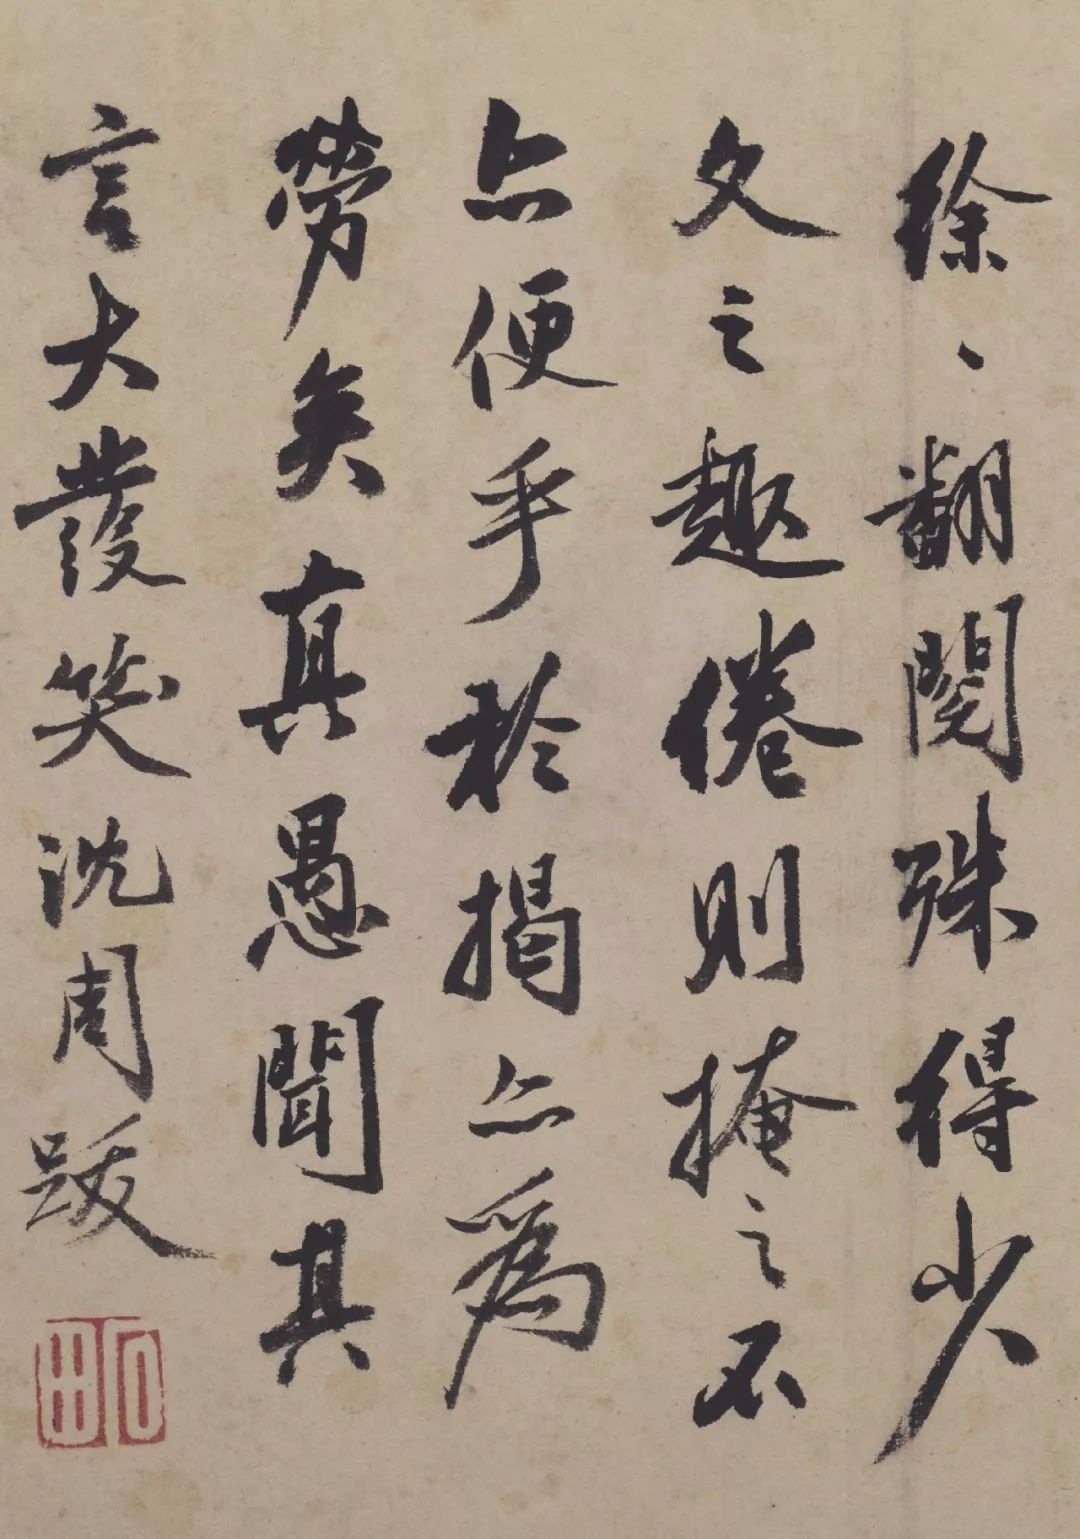 徐〻翻閱殊得少
文之趣倦則掩之不
亦便乎於揭亦為
勞矣真愚聞其
言大發笑沈周跋
石田